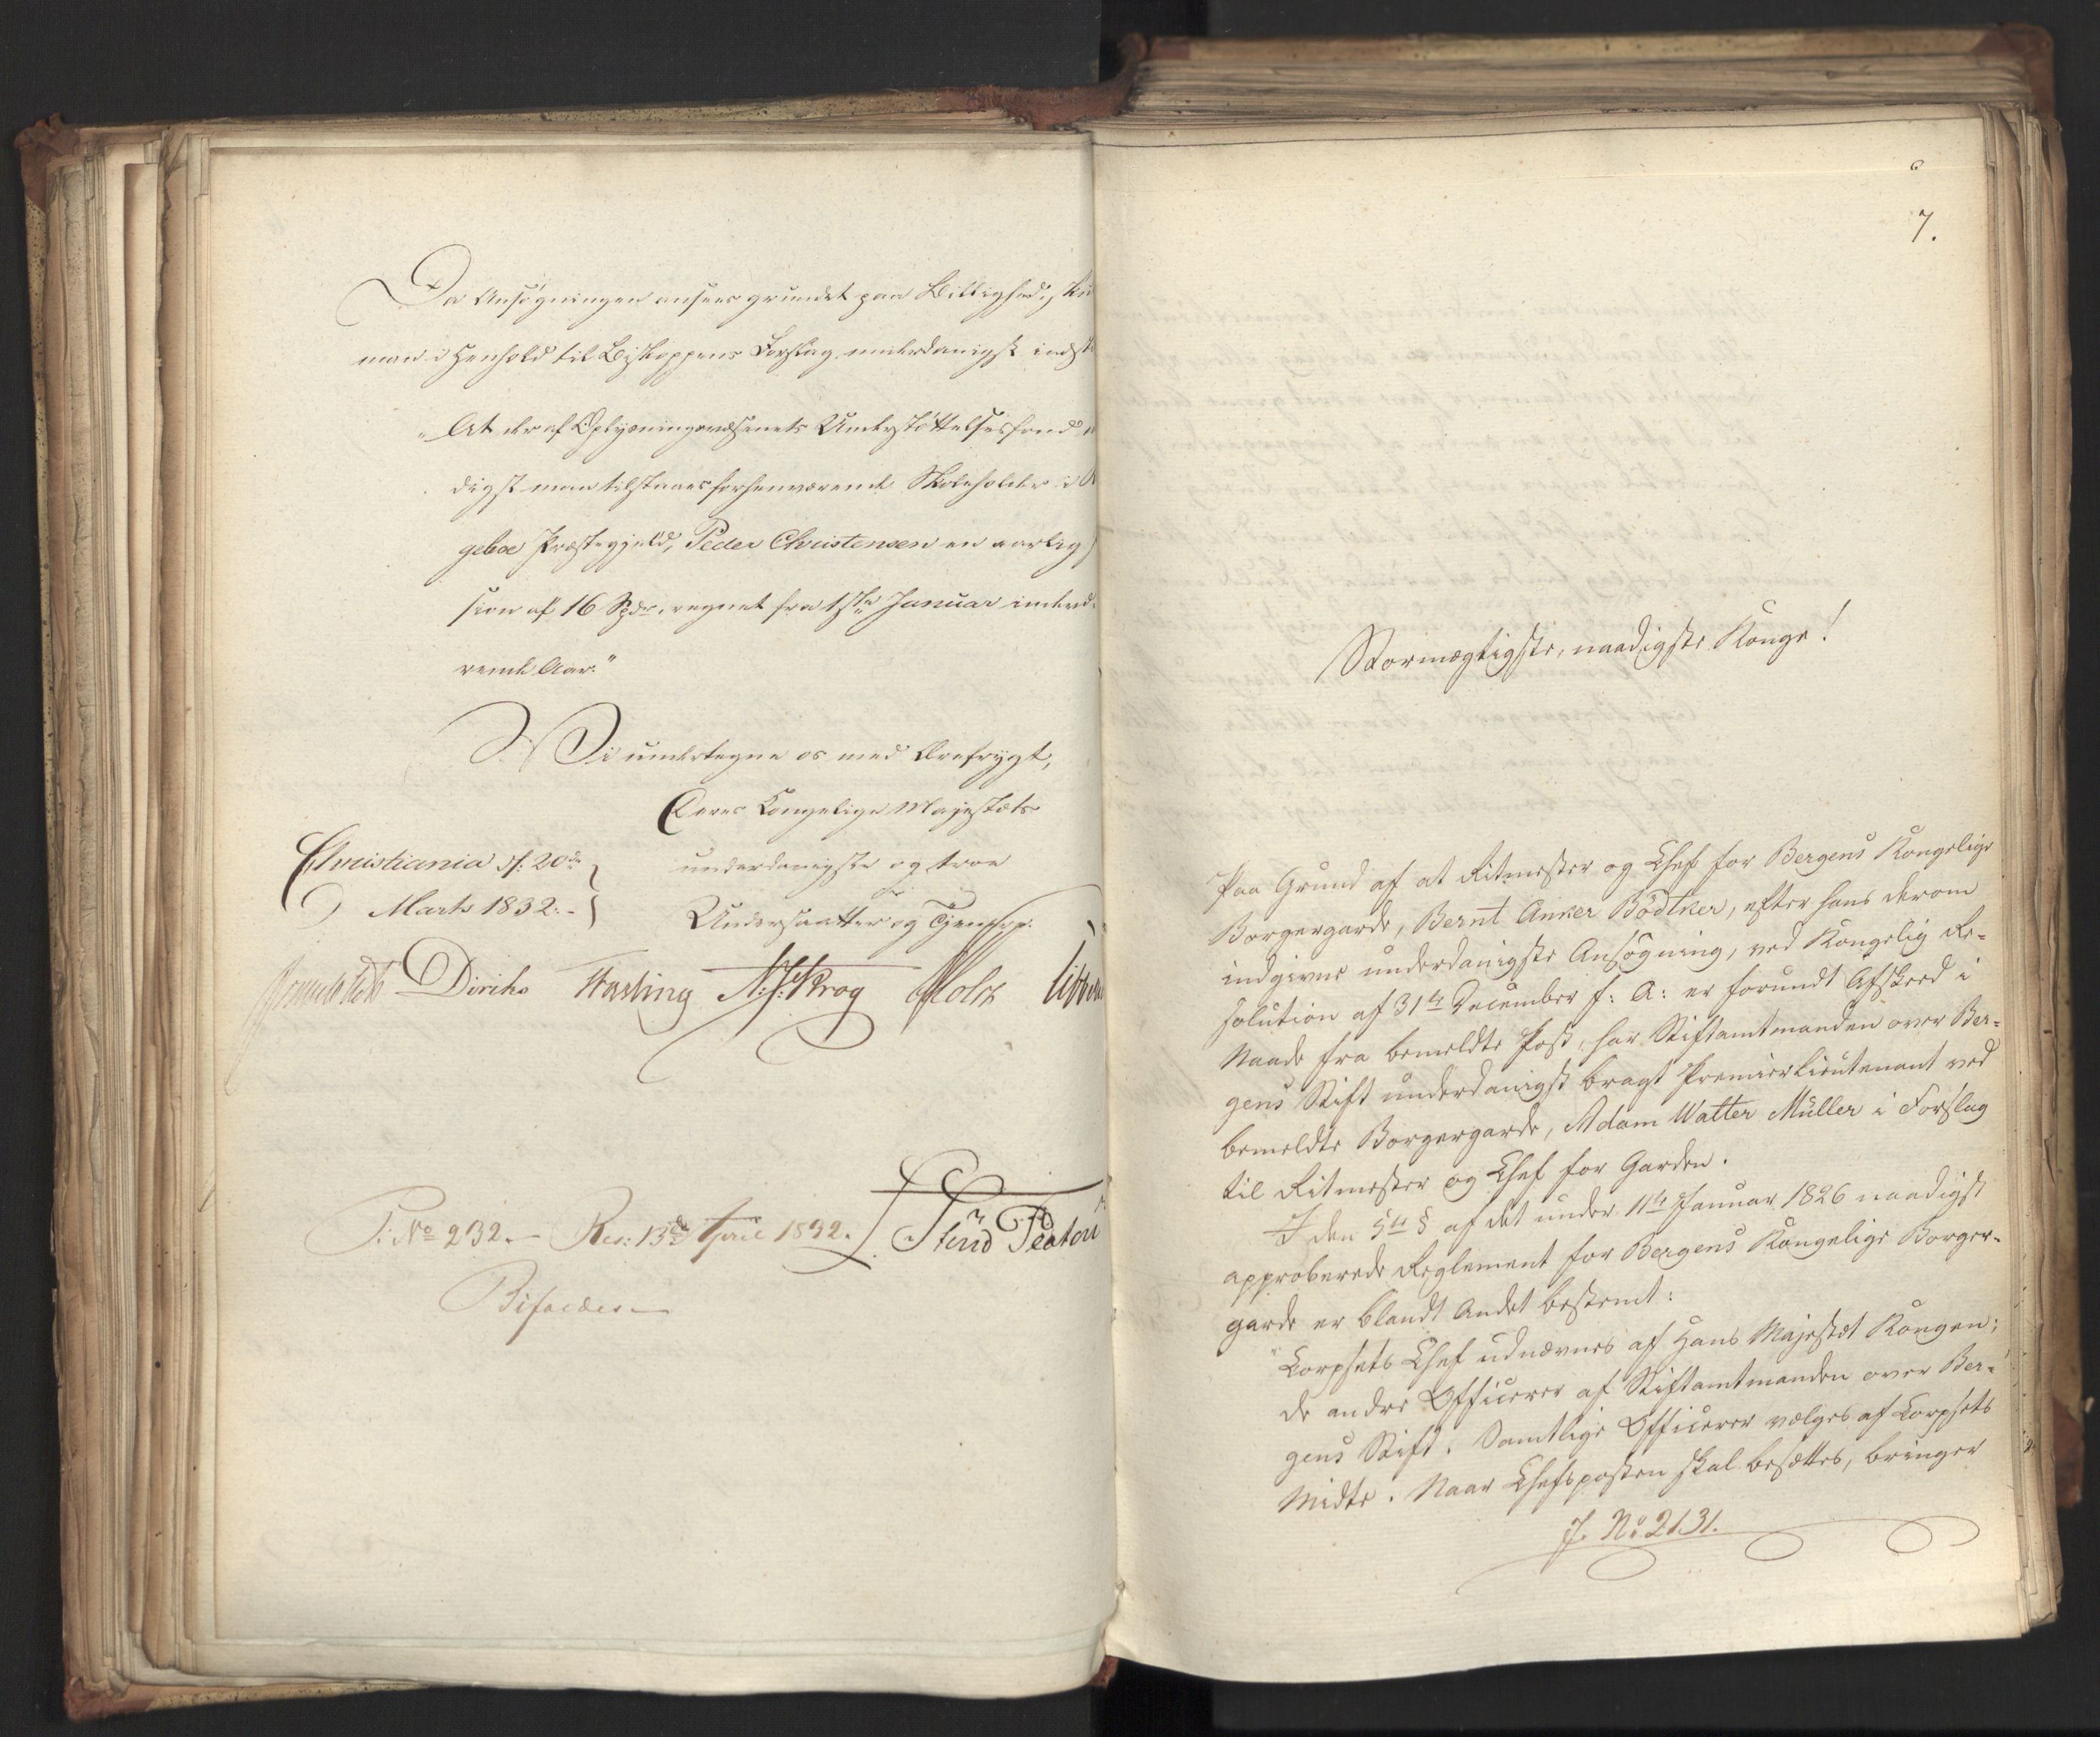 Da Ansøgningen ansees grundet paa Billighed, sku
man i Henhold til Biskoppens Forslag underdanigst indst
"At der af Oplysningsvæsenets Understøttelsesfond
digst maa tilstaaes forhenværende Skoleholder i
geboe Præstegjeld, Peder Christensen en aarlig
sion af 16 Spdr., regnet fra 1ste Januar indevæ
rende Aar."
Vi undertegne os med Ærefrygt,
Deres Kongelige Majestæts
Christiania d: 20de
underdanigste og troe
Marts 1832.-
Undersaatter og Tjenere.
Diriks Fasting Krog Holst
P. No 232. - Res: 13de April 1832.
Bifaldes
7.
Stormægtigste, naadigste Konge!
Paa Grund af at Ritmester og Chef for Bergens Kongelige
Borgergarde, Bernt Anker Bødtker, efter hans derom
indgivne underdanigste Ansøgning, ved Kongelig Re-
solution af 31te December f: A: er forundt Afskeed i
Naade fra bemeldte Post, har Stiftamtmanden over Ber-
gens Stift underdanigst bragt Premierlieutenant ved
bemeldte Borgergarde, Adam Walter Müller i Forslag
til Ritmester og Chef for Garden.
I den 5te § af det under 11te Januar 1826 naadigst
approberede Reglement for Bergens Kongelige Borger-
garde er blandt Andet bestemt:
"Corpsets Chef udnævnes af Hans Majestæt Kongen;
de andre Officerer af Stiftamtmanden over Ber-
gens Stift. Samtlige Officerer vælges af Corpsets
Midte. Naar Chefsposten skal besættes, bringer
J. No 2131.